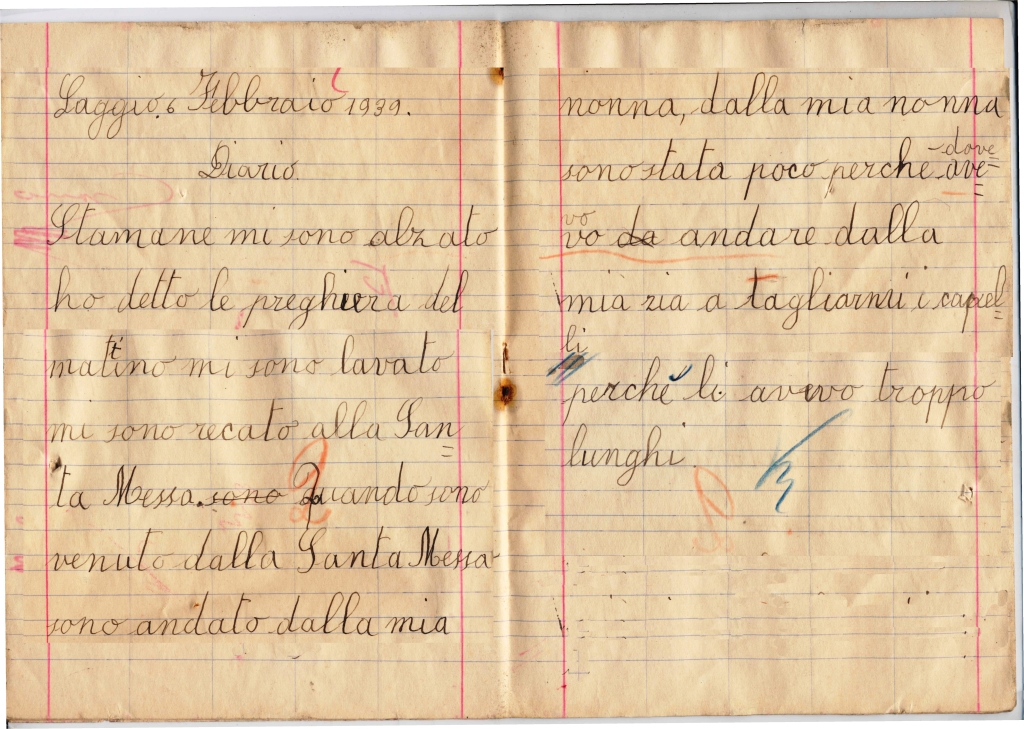 Laggio, 6 Febbraio 1939.
Diario.
Stamane mi sono alzato
ho detto le preghiera del
mattino mi sono lavato
mi sono recato alla San=
ta Messa. sono Quando sono
venuto dalla Santa Messa
sono andato dalla mia
nonna, dalla mia nonna
dove=
sono stata poco perchè ave=
vo
vo da andare dalla
mia zia a tagliarmi i capel=
li
perchè li avevo troppo
lunghi.